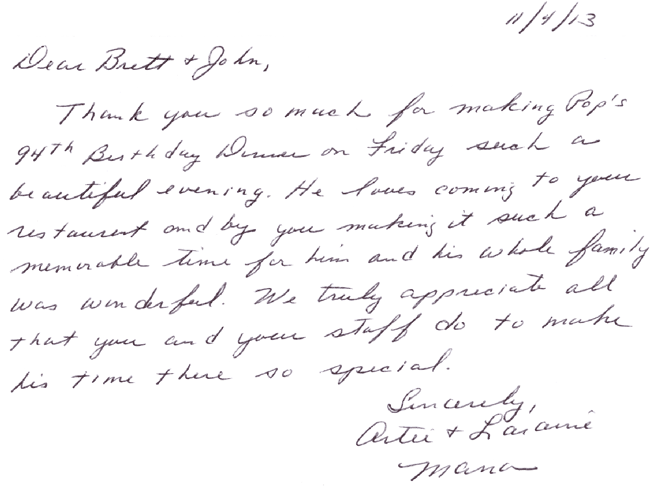 11/4/13
Dear Brett + John,
Thank you so much for making Pop's
94th Birthday Dinner on Friday such a
beautiful evening. He loves coming to your
restaurent and by you making it such a
memorable time for him and his whole family
was wonderful. We truly appreciate all
that you and your staff do to make
his time there so special.
Sincerely,
Artie + Laraine